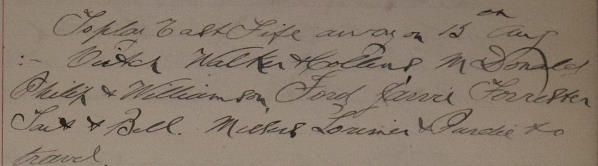 To play East Fife away on 15th Aug
:- Veitch Walker & Collins McDonald
Philip & Williamson, Ford Jarvie Forrester
Tait & Bell. Messrs Lorimer & Purdie to
travel.